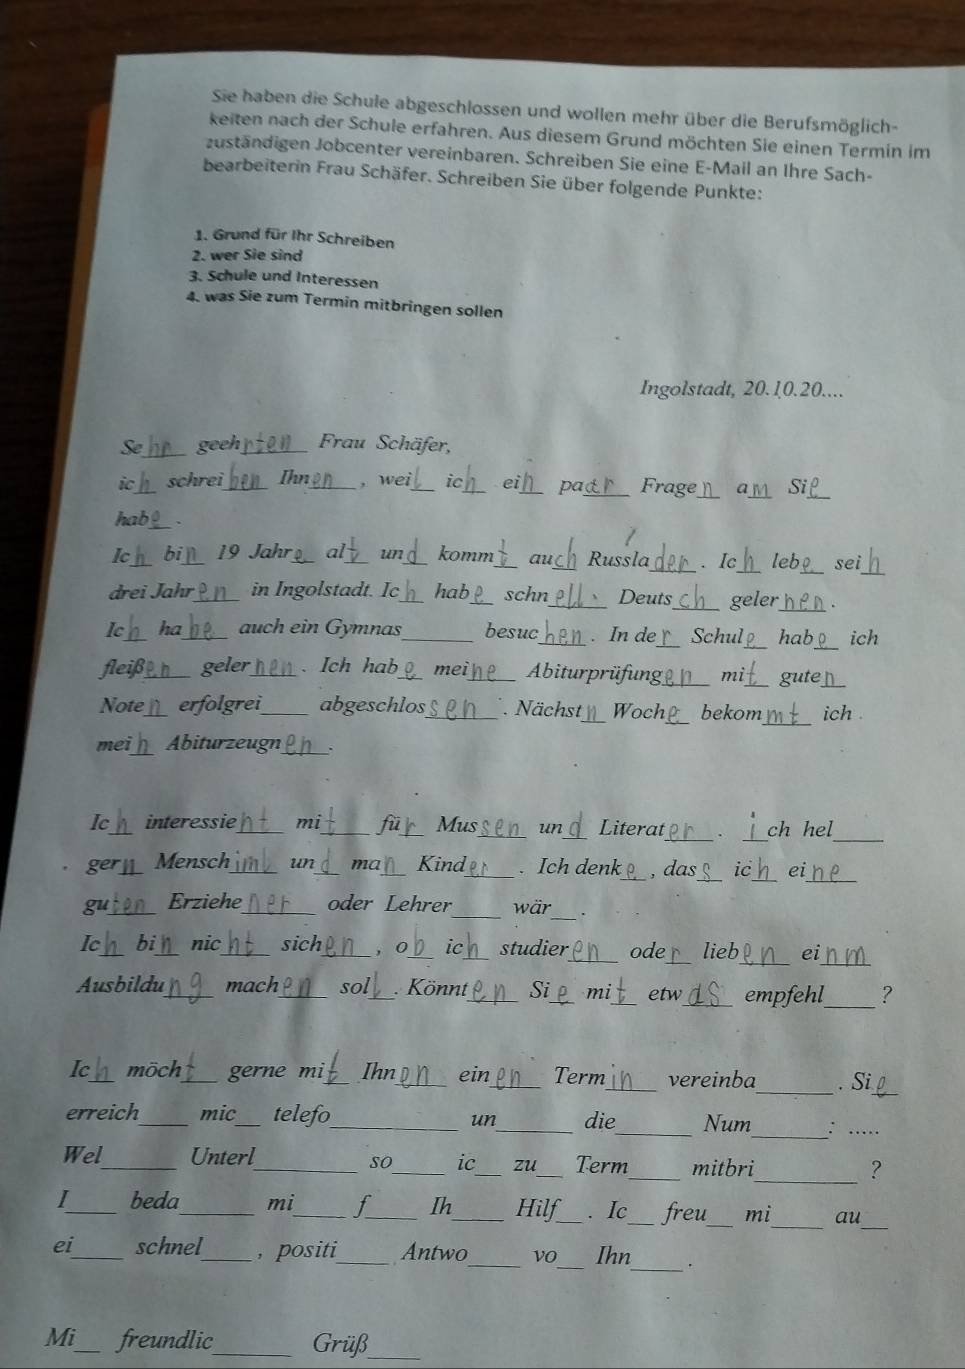 Sie haben die Schule abgeschlossen und wollen mehr über die Berufsmöglich-
keiten nach der Schule erfahren. Aus diesem Grund möchten Sie einen Termin im
zuständigen Jobcenter vereinbaren. Schreiben Sie eine E-Mail an Ihre Sach-
bearbeiterin Frau Schäfer. Schreiben Sie über folgende Punkte:
1. Grund für Ihr Schreiben
2. wer Sie sind
3. Schule und Interessen
4. was Sie zum Termin mitbringen sollen
Ingolstadt, 20.10.20....
Sehr geehrten Frau Schäfer,
ich schreiben Ihnen, weil ich ein paar Fragen am Sie
habe.
Ich bin 19 Jahre alt und kommt auch Russlader. Ich lebe seih
drei Jahren in Ingolstadt. Ich habe schnell Deutsch gelernen.
Ich habe auch ein Gymnas____ besuchen. In der Schule habe ich
fleißen gelernen. Ich habe meine Abiturprüfungen mit guten
Noten erfolgrei____ abgeschlossen. Nächstn Woche bekommt ich.
mein Abiturzeugnen.
Ich interessieht mit für Mussen und Literater. ich hel____
gern Menschiml und man Kinder. Ich denke, dass ich eine
guten Erziehener oder Lehrer____ wär__.
Ich bin nicht sichen, ob ich studieren oder lieben einm
Ausbildung machen soll. Könnten Sie mit etwas empfehl____?
Ich möcht gerne mit Ihnen einen Termin vereinba____. Sie
erreich____ mic__ telefo____ un____ die____ Num____: .....
Wel____ Unterl____ so____ ic__ zu__ Term____ mitbri____?
I____ beda____ mi____ f____ Ih____ Hilf__. Ic__ freu__ mi____ au__
ei____ schnel____, positi____ Antwo____ vo__ Ihn____.
Mi__ freundlic____ Grüß____